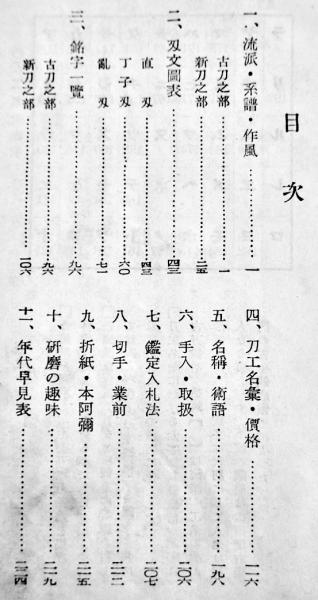 目次
一、流派・系譜・作風……………一
古刀之部……………一
新刀之部……………二五
二、刃文圖表……………四三
直刃……………四三
丁子刃……………六〇
亂刃……………七一
三、銘字一覧……………九六
古刀之部……………九六
新刀之部……………一〇六
四、刀工名彙・價格……………一一六
五、名稱・術語……………一九八
六、手入・取扱……………二〇六
七、鑑定入札法……………二〇七
八、切手・業前……………二一二
九、折紙・本阿彌……………二一五
十、研磨の趣味……………二一九
十一、年代早見表……………二二四